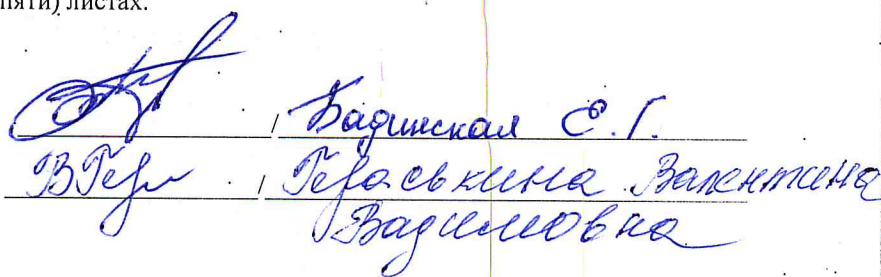 пяти) листах.
/ Бадинская Е.Г.
ВГер / Гераськина Валентина
Вадимовна